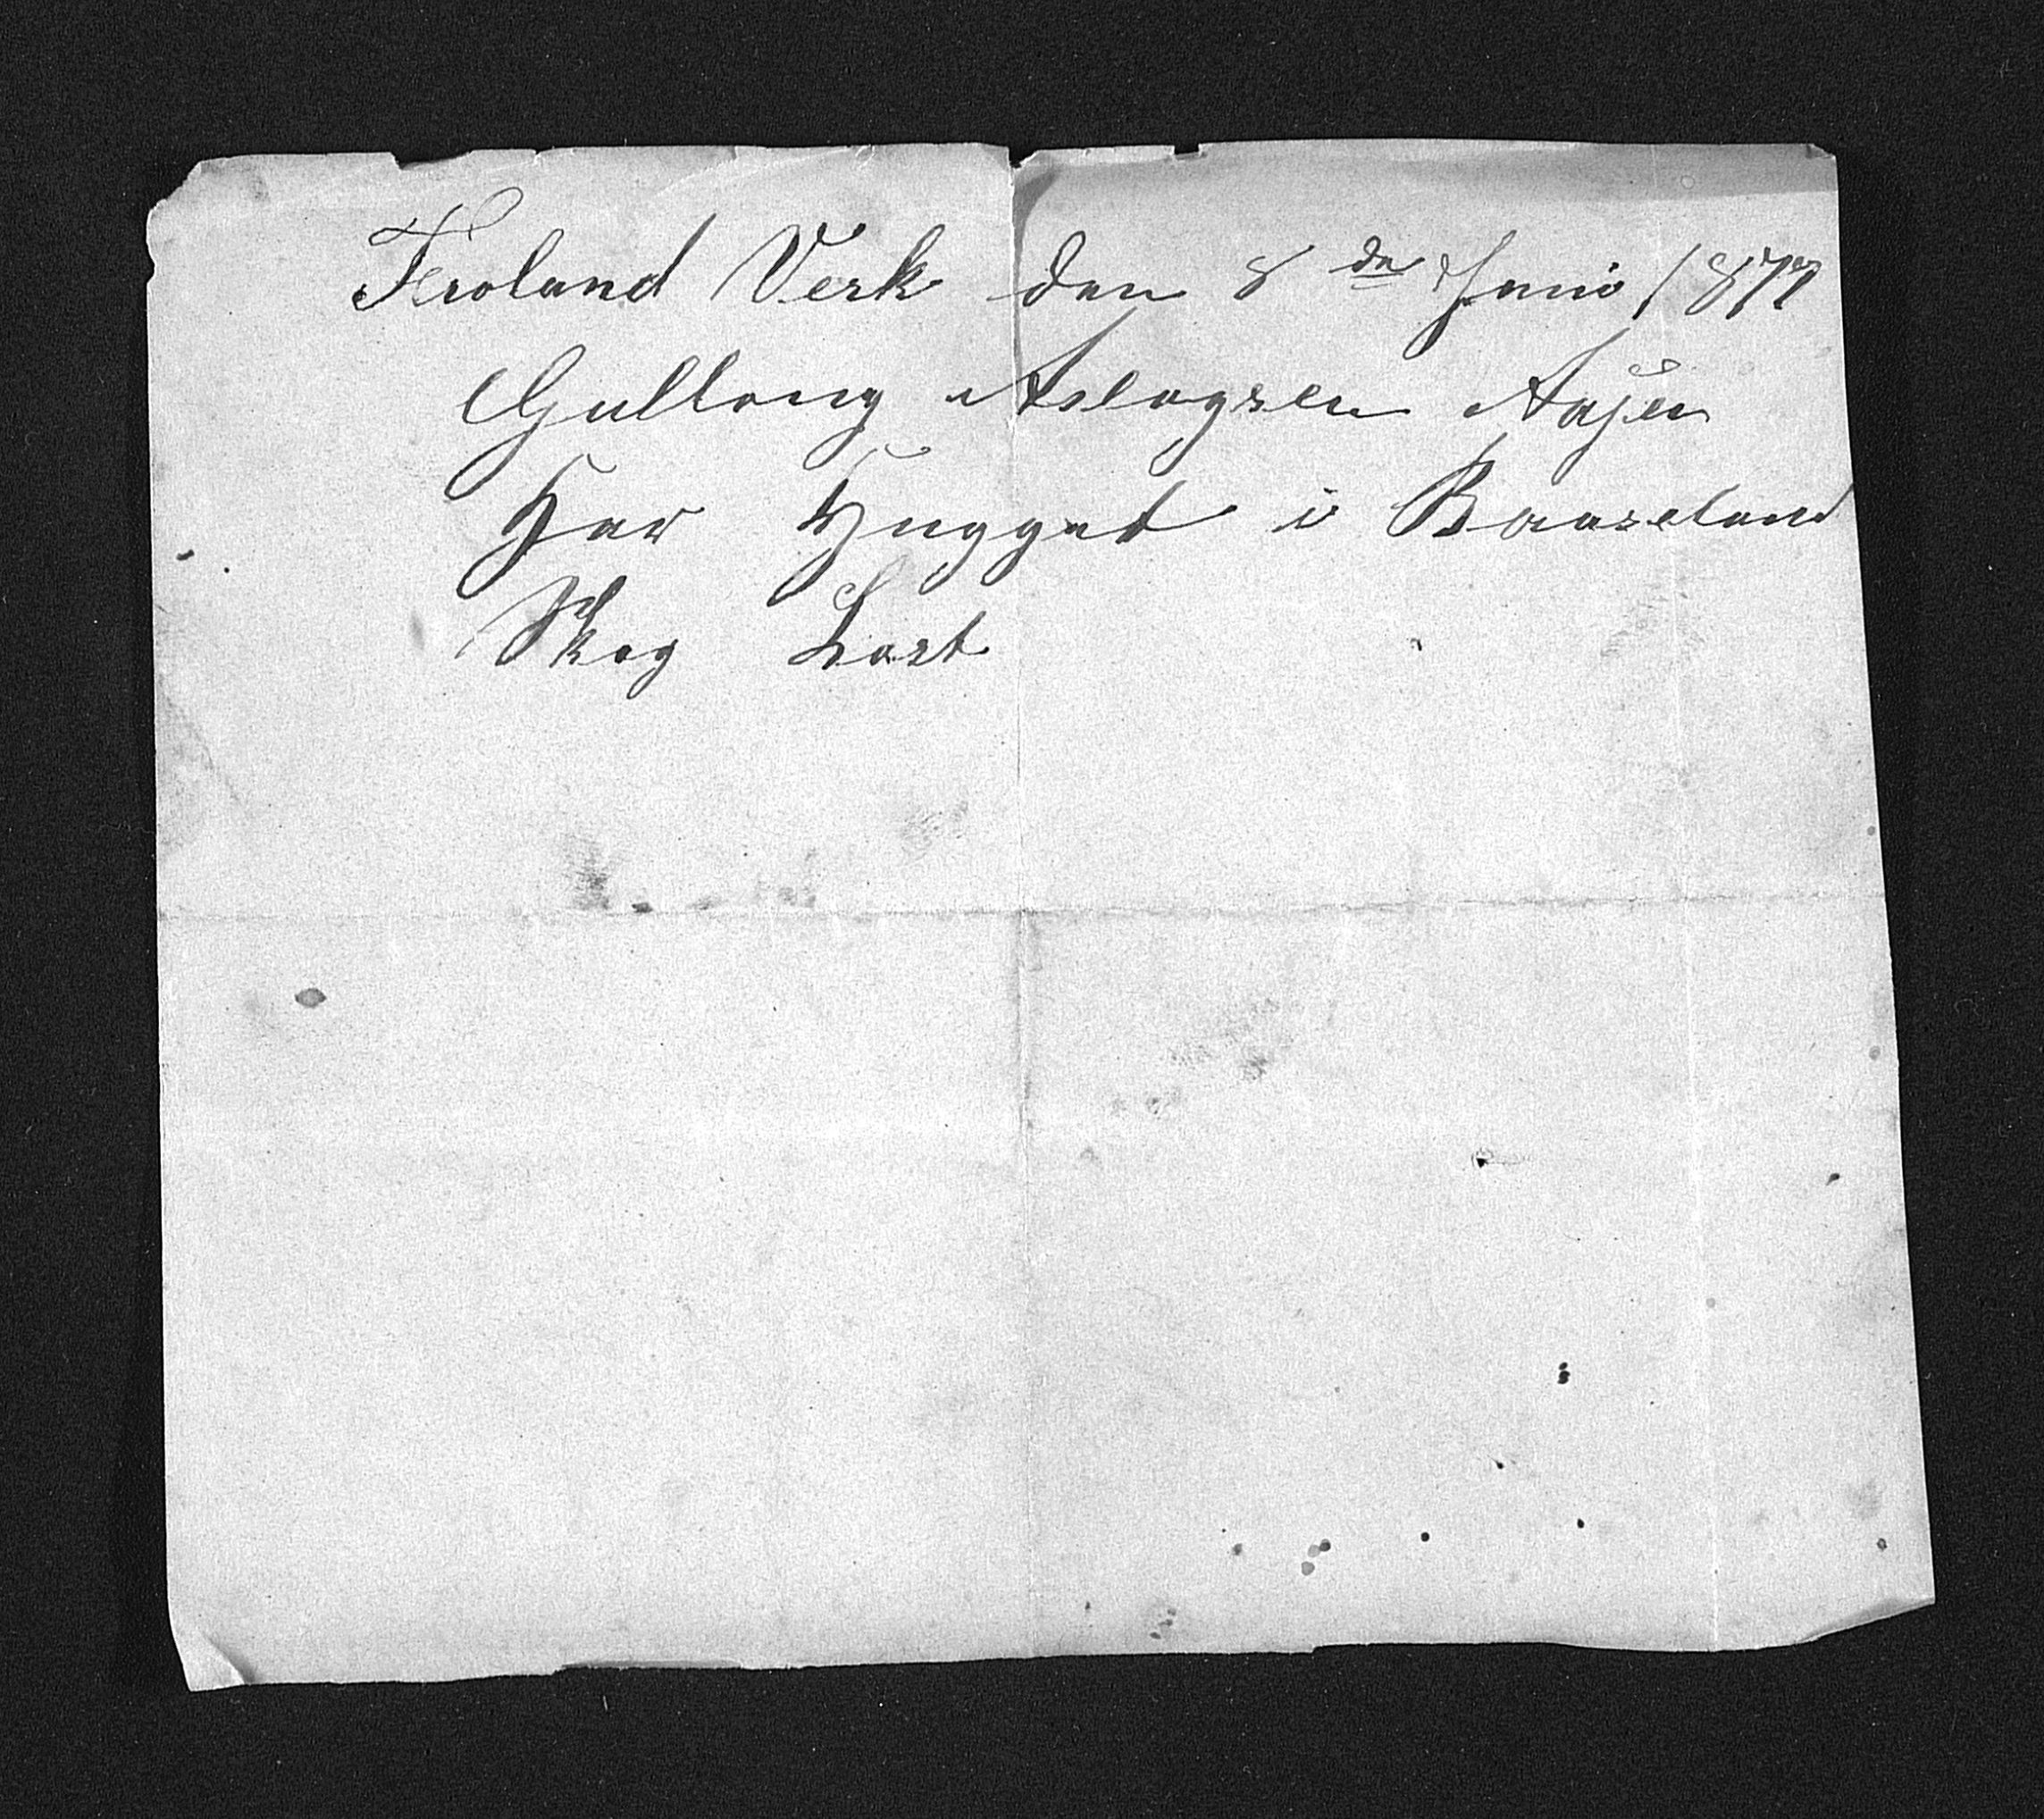 Froland Verk den 8 de Juni 1877
Gullong Aslagsen Aasen
Har Hugget i Baaseland
Skog Last